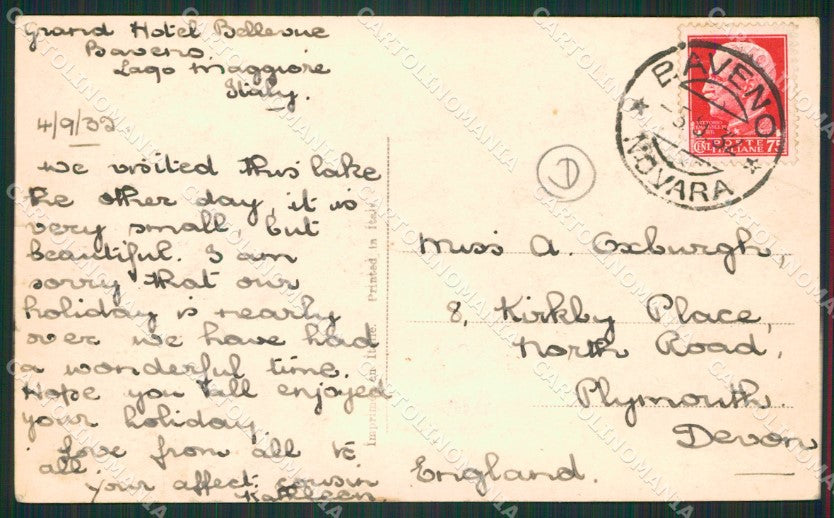 Grand Hotel Bellevue
Baveno.
Lago Maggiore
Italy.
4/9/32
We visited this lake
the other day, it is
very small, but
beautiful. I am
sorry that our
holiday is nearly
over we have had
a wonderful time.
Hope you all enjoyed
your holiday.
Love from all to
all.
your affect. cousin
Kathleen
Imprimé en Italie. Printed in Italy.
D
BAVENO
NOVARA
POSTE
ITALIANE
CENT 75
Miss A. Oxburgh,
8, Kirkby Place,
North Road,
Plymouth.
Devon
England.
CARTOLINOMANIA